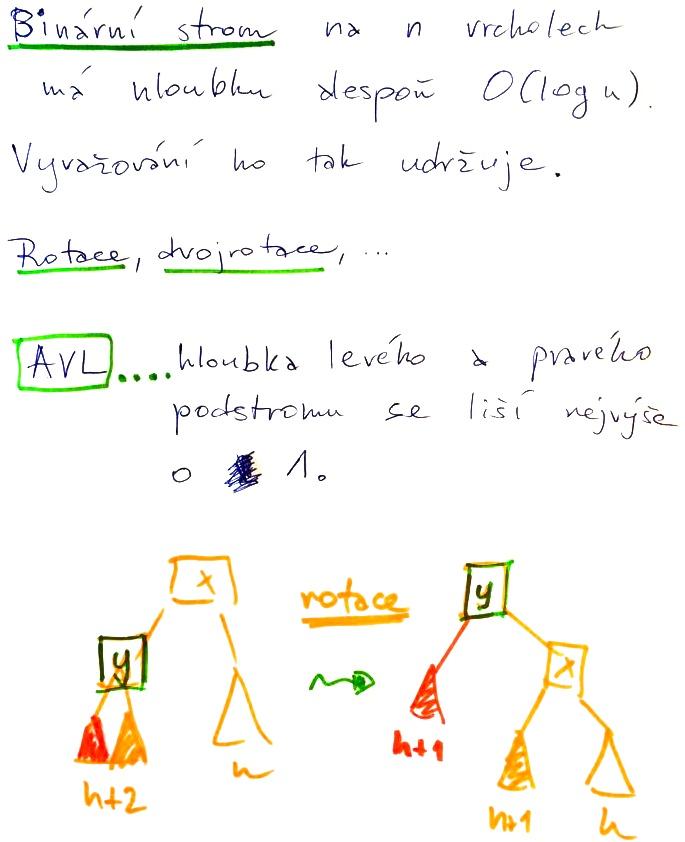 Binární strom na n vrcholech
má hloubku alespoň O(log n).
Vyvažování ho tak udržuje.
Rotace, dvojrotace, ...
AVL....hloubka levého a pravého
podstromu se liší nejvýše
o 1.
x
rotace
y
y
x
h+1
h
h+2
h+1
h